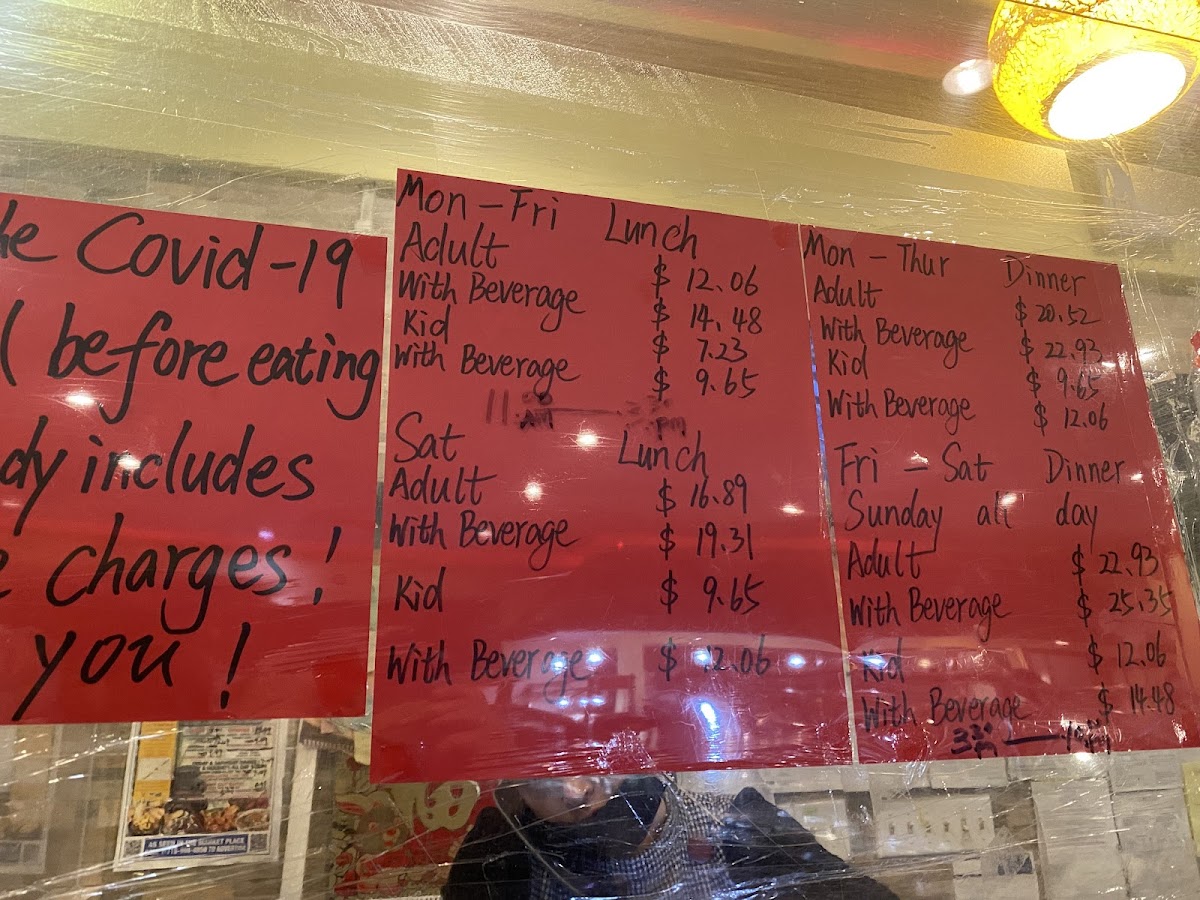 he Covid-19
before eating
dy includes
charges!
you!
Mon-Fri Lunch
Adult $ 12.06
With Beverage $ 14.48
Kid $ 7.23
With Beverage $ 9.65
11:00 AM — 3:30 PM
Sat Lunch
Adult $ 16.89
With Beverage $ 19.31
Kid $ 9.65
With Beverage $ 12.06
Mon-Thur Dinner
Adult $ 20.52
With Beverage $ 22.93
Kid $ 9.65
With Beverage $ 12.06
Fri - Sat Dinner
Sunday all day
Adult $ 22.93
With Beverage $ 25.35
Kid $ 12.06
With Beverage $ 14.48
3:30 PM —
AS SEEN IN THE MARKET PLACE